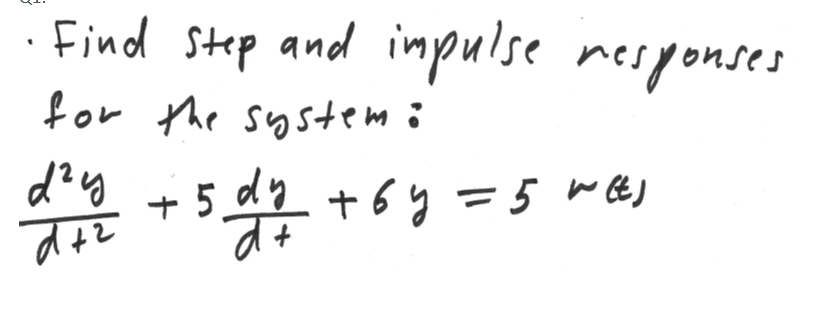 Q1.
· Find step and impulse responses
for the system:
d²y/dt² + 5 dy/dt + 6y = 5 r(t)